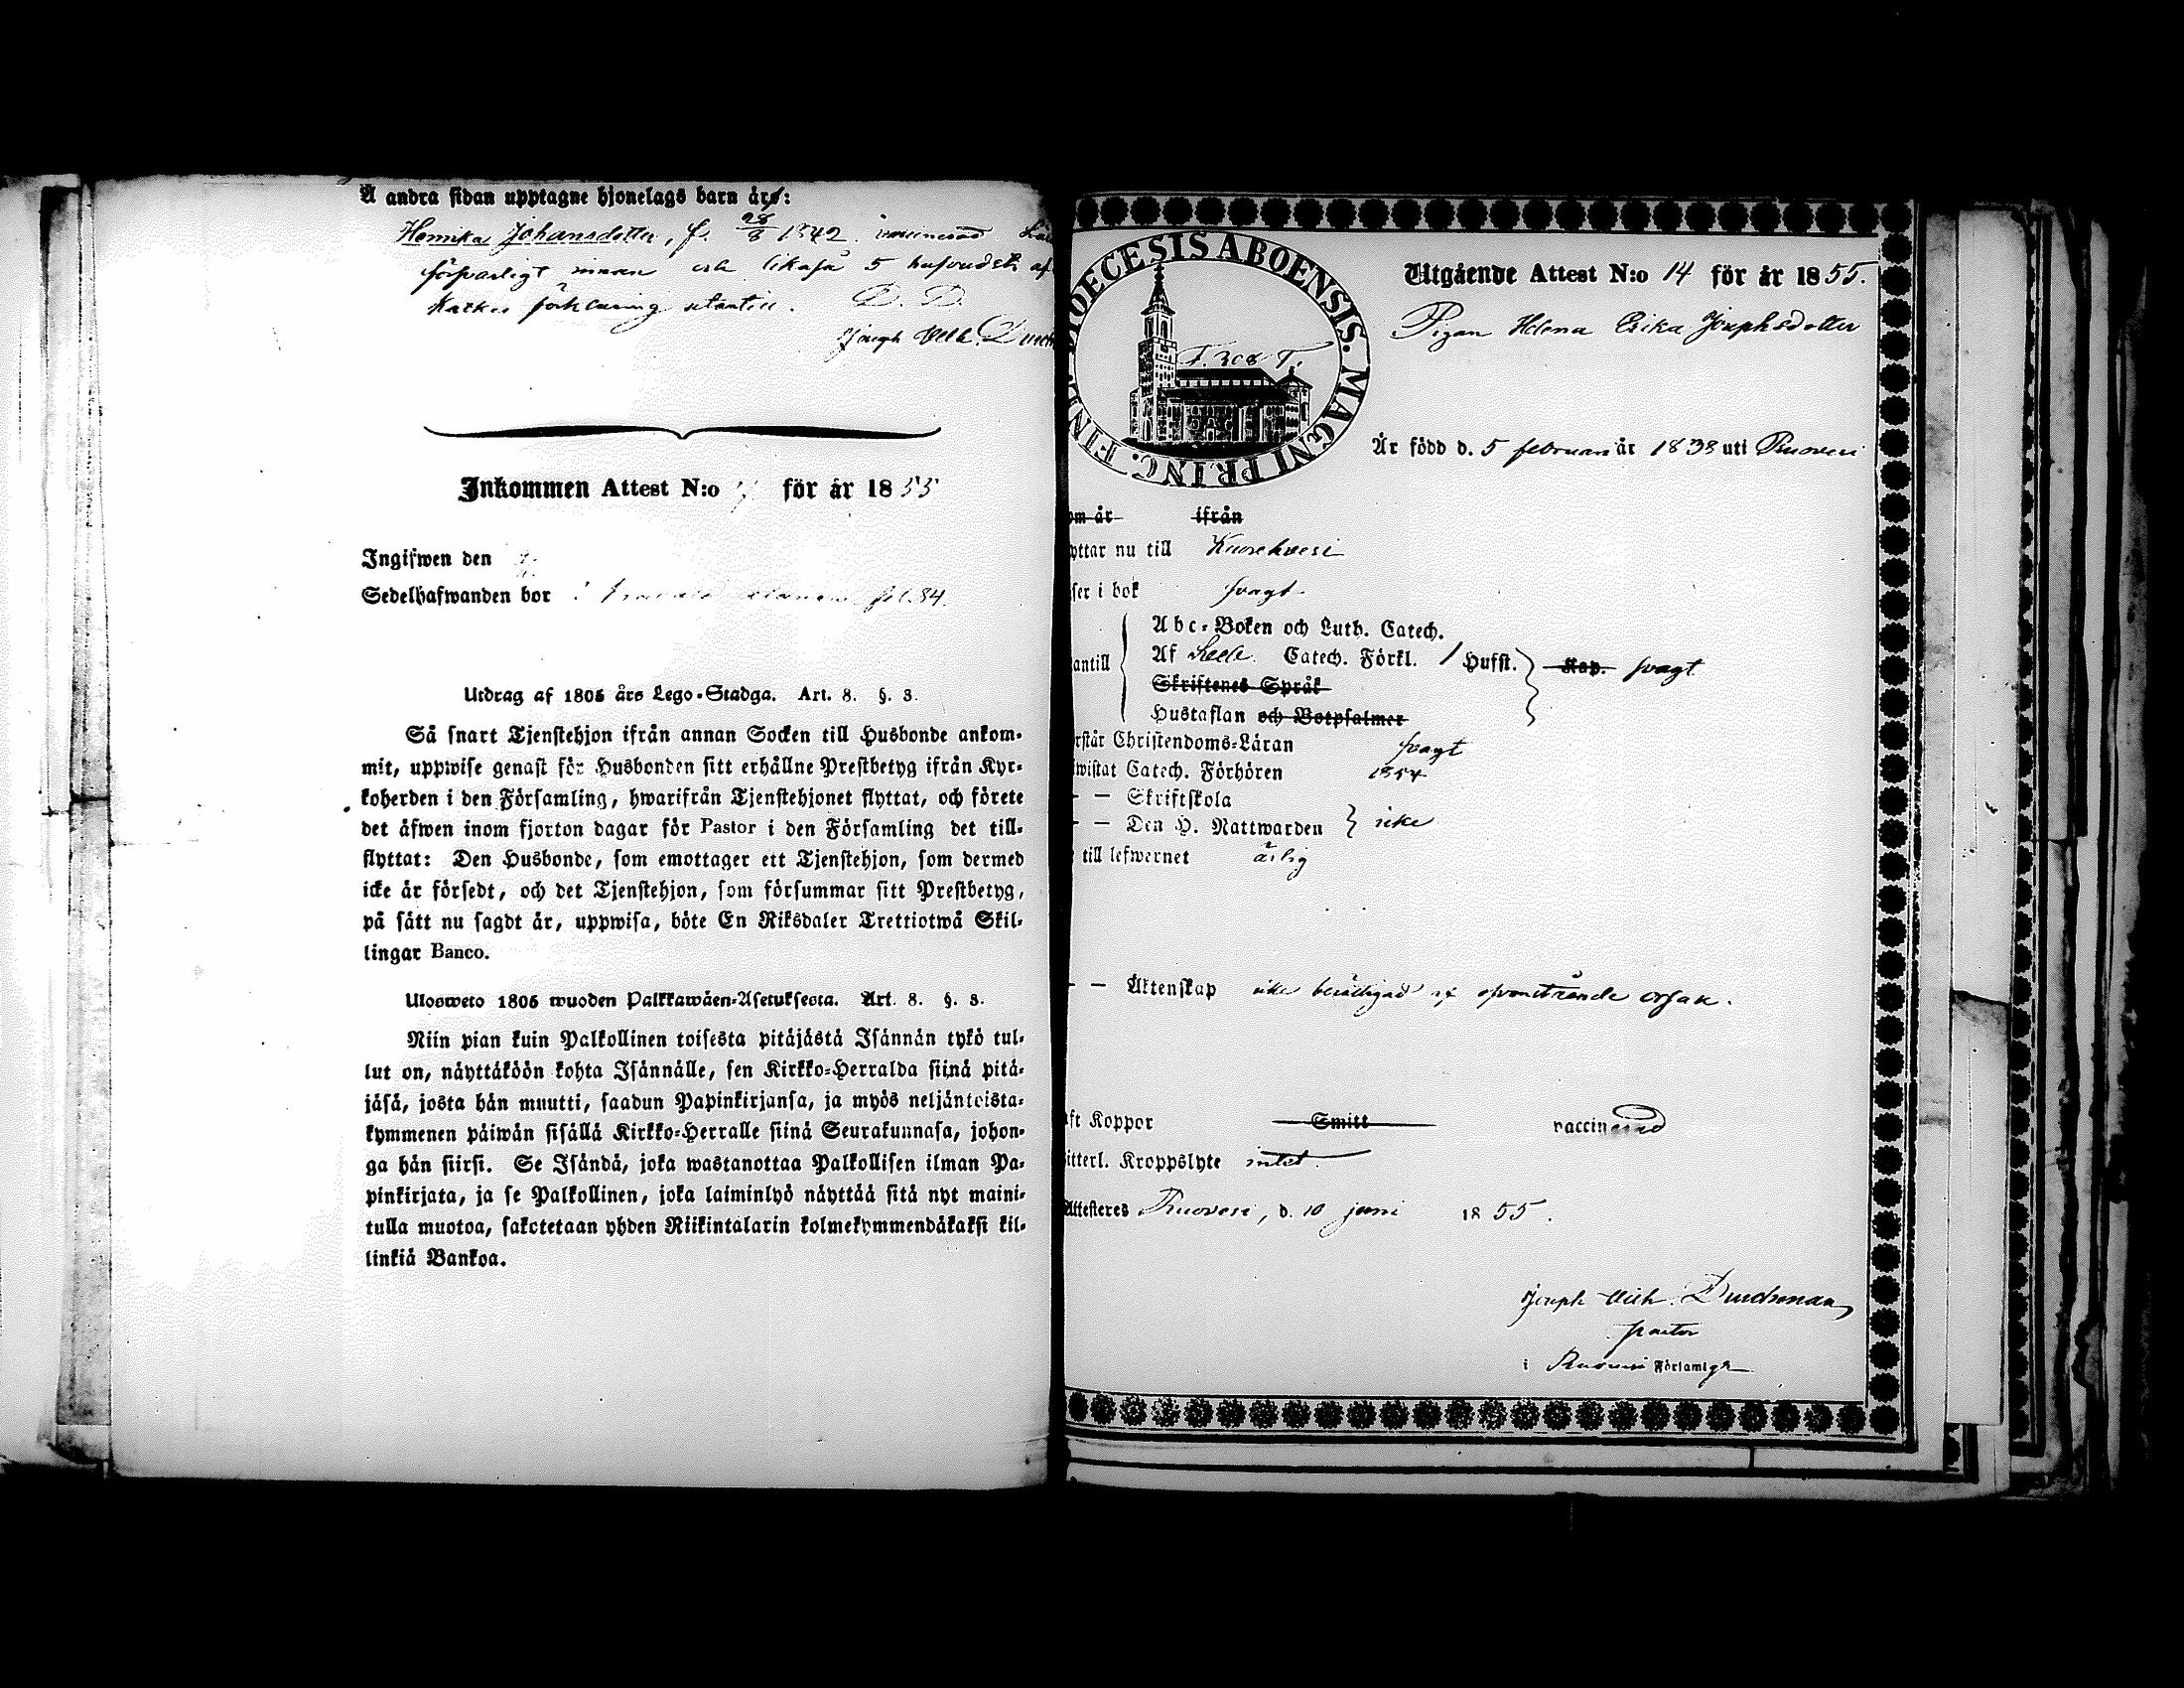 Å andra sidan upptagne hjonelags barn äro:
Henrika Johansdotter, f. 28/8 1842. vaccinerad
försvarligt innan och likaså 5 hufvudst. af
förklaring utantill. D. D.
Joseph Wilh.
Inkommen Attest N:o för år 1855
Ingifwen den
Sedelhafwanden bor fol. 84.
Utdrag af 1805 års Lego-Stadga. Art. 8. §. 3.
Så snart Tjenstehjon ifrån annan Socken till Husbonde ankom-
mit, uppwise genast för Husbonden sitt erhållne Prestbetyg ifrån Kyr-
koherden i den Församling, hwarifrån Tjenstehjonet flyttat, och förete
det äfwen inom fjorton dagar för Pastor i den Församling det till-
flyttat: Den Husbonde, som emottager ett Tjenstehjon, som dermed
icke är försedt, och det Tjenstehjon, som försummar sitt Prestbetyg,
på sätt nu sagdt är, uppwisa, böte En Riksdaler Trettiotwå Skil-
lingar Banco.
Ulosweto 1805 wuoden Palkkawäen-Asetuksesta. Art. 8. §. 3.
Niin pian kuin Palkollinen toisesta pitäjästä Isännän tykö tul-
lut on, näyttäköön kohta Isännälle, sen Kirkko-Herralda siinä pitä-
jäsä, josta hän muutti, saadun Papinkirjansa, ja myös neljäntoista-
kymmenen päiwän sisällä Kirkko-Herralle siinä Seurakunnasa, johon-
ga hän siirsi. Se Isändä, joka wastanottaa Palkollisen ilman Pa-
pinkirjata, ja se Palkollinen, joka laiminlyö näyttää sitä nyt maini-
tulla muotoa, sakotetaan yhden Riikintalarin kolmekymmendäkaksi kil-
linkiä Bankoa.
DIOECESIS ABOENSIS. MAGNI PRINC. FINL.
F. 308 T.
Utgående Attest N:o 14 för år 1855.
Pigan Helena Erika Josephsdotter
Är född d. 5 februari år 1838 uti Ruovesi
om år ifrån
yttar nu till Kuorehvesi
ser i bok svagt.
antill
Abc-Boken och Luth. Catech.
Af Catech. Förkl. 1 Hufst. Kap. svagt
Skriftenes Språk
Hustaflan och Botpsalmer
rstår Christendoms-Läran svagt
wistat Catech. Förhören 1854
— Skriftskola
— Den H. Nattwarden icke
till lefwernet ärlig
— Äktenskap icke berättigad af ofvanstående orsak.
ft Koppor Smitt vaccinerad
itterl. Kroppslyte intet.
Attesteres Ruovesi, d. 10 juni 1855.
Joseph Wilh. Durchman
pastor
i Ruovesi Församlgn